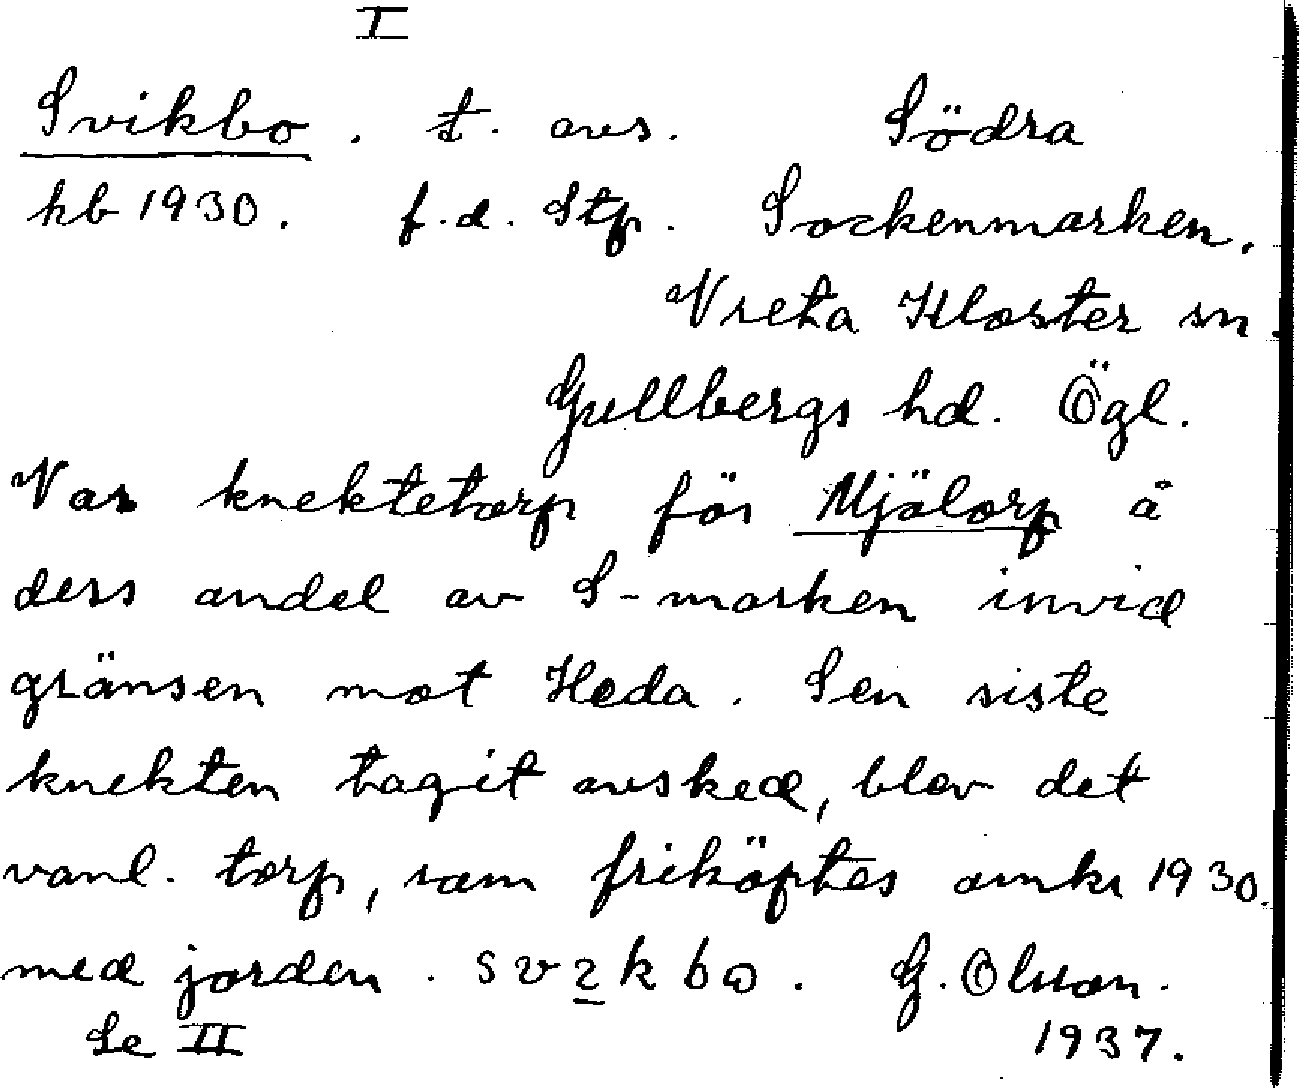 I
Svikbo. t. avs. Södra
kb 1930. f.d. Stp. Sockenmarken.
Vreta Kloster sn.
Gullbergs hd. Ögl.
Var knektetorp för Mjölorp å
dess andel av S-marken invid
gränsen mot Heda. Sen siste
knekten tagit avsked, blev det
vanl. torp, som friköptes omkr 1930.
med jorden. svɩkbω. G. Olsson.
Se II 1937.